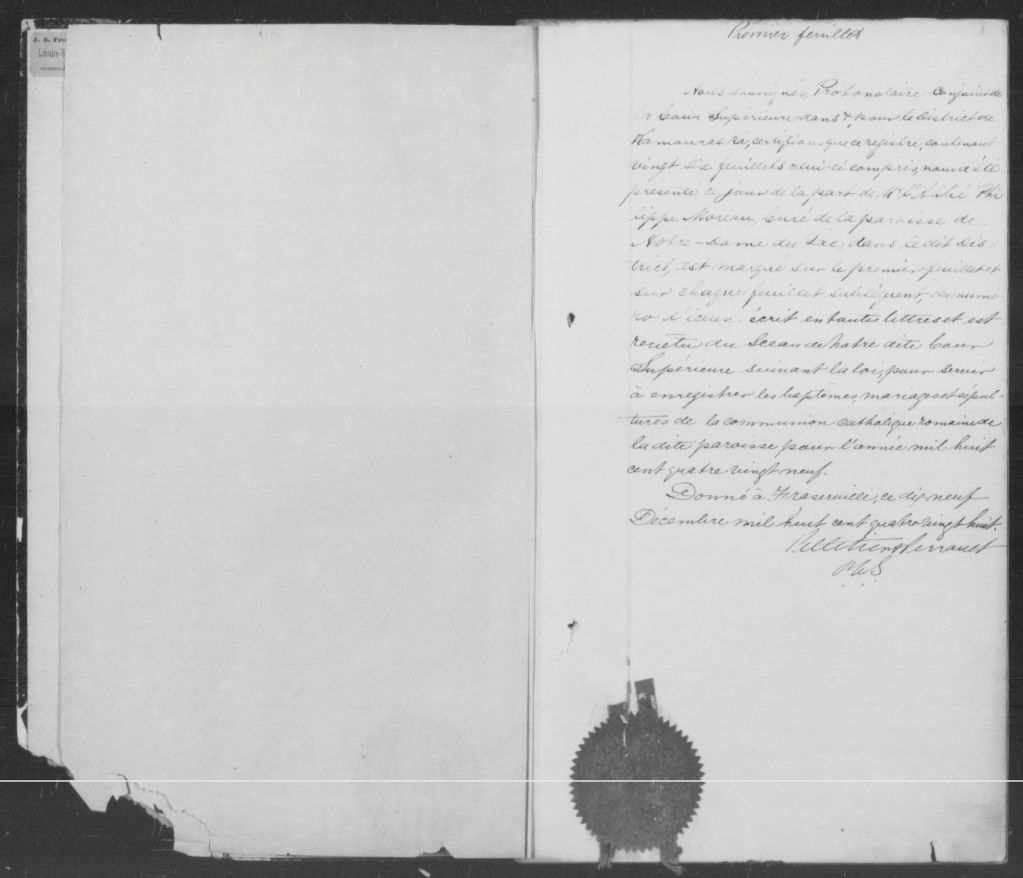 Premier feuillet
1
Nous soussignés, Protonotaire-Conjoint de
la Cour Supérieure dans &, pour le District de
Kamouraska, certifions que ce registre, contenant
vingt six feuillets celui-ci compris, nous a été
présenté ce jour de la part de Mr l'Abbé Phi
lippe Moreau, Curé de la paroisse de
Notre-Dame du Lac, dans le dit Dis-
trict, est marqué sur le premier feuillet et
sur chaque feuillet subséquent, du numé-
ro d'iceux écrit en toutes lettres et est
revêtu du Sceau de notre dite Cour
Supérieure suivant la loi, pour servir
à enregistrer les baptêmes, mariages et sépul-
tures de la communion catholique romaine de
la dite paroisse pour l'année mil huit
cent quatre vingt neuf.
Donné à Fraserville, ce dix neuf
Décembre mil huit cent quatre vingt huit.
Pelletier & Perrault
P.C.S.
J. E.
Libraire-